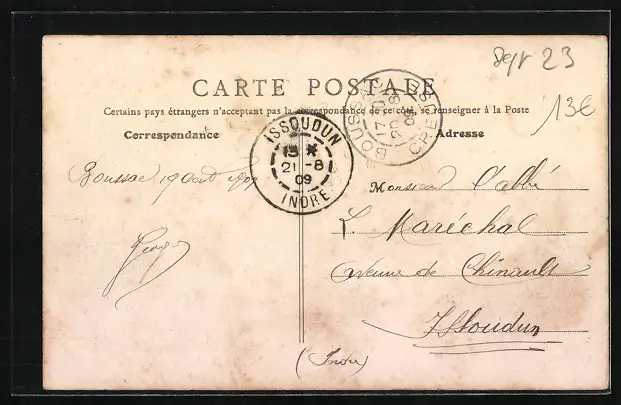 Dept 23
CARTE POSTALE
13€
Certains pays étrangers n'acceptent pas la correspondance de ce côté, se renseigner à la Poste
Correspondance
Adresse
BOUSSAC
17
20 -8
09
CREUSE
ISSOUDUN
21 -8
09
INDRE
Boussac 19 Août 1909
Monsieur l'abbé
L. Maréchal
Avenue de Chinault
Issoudun
(Indre)